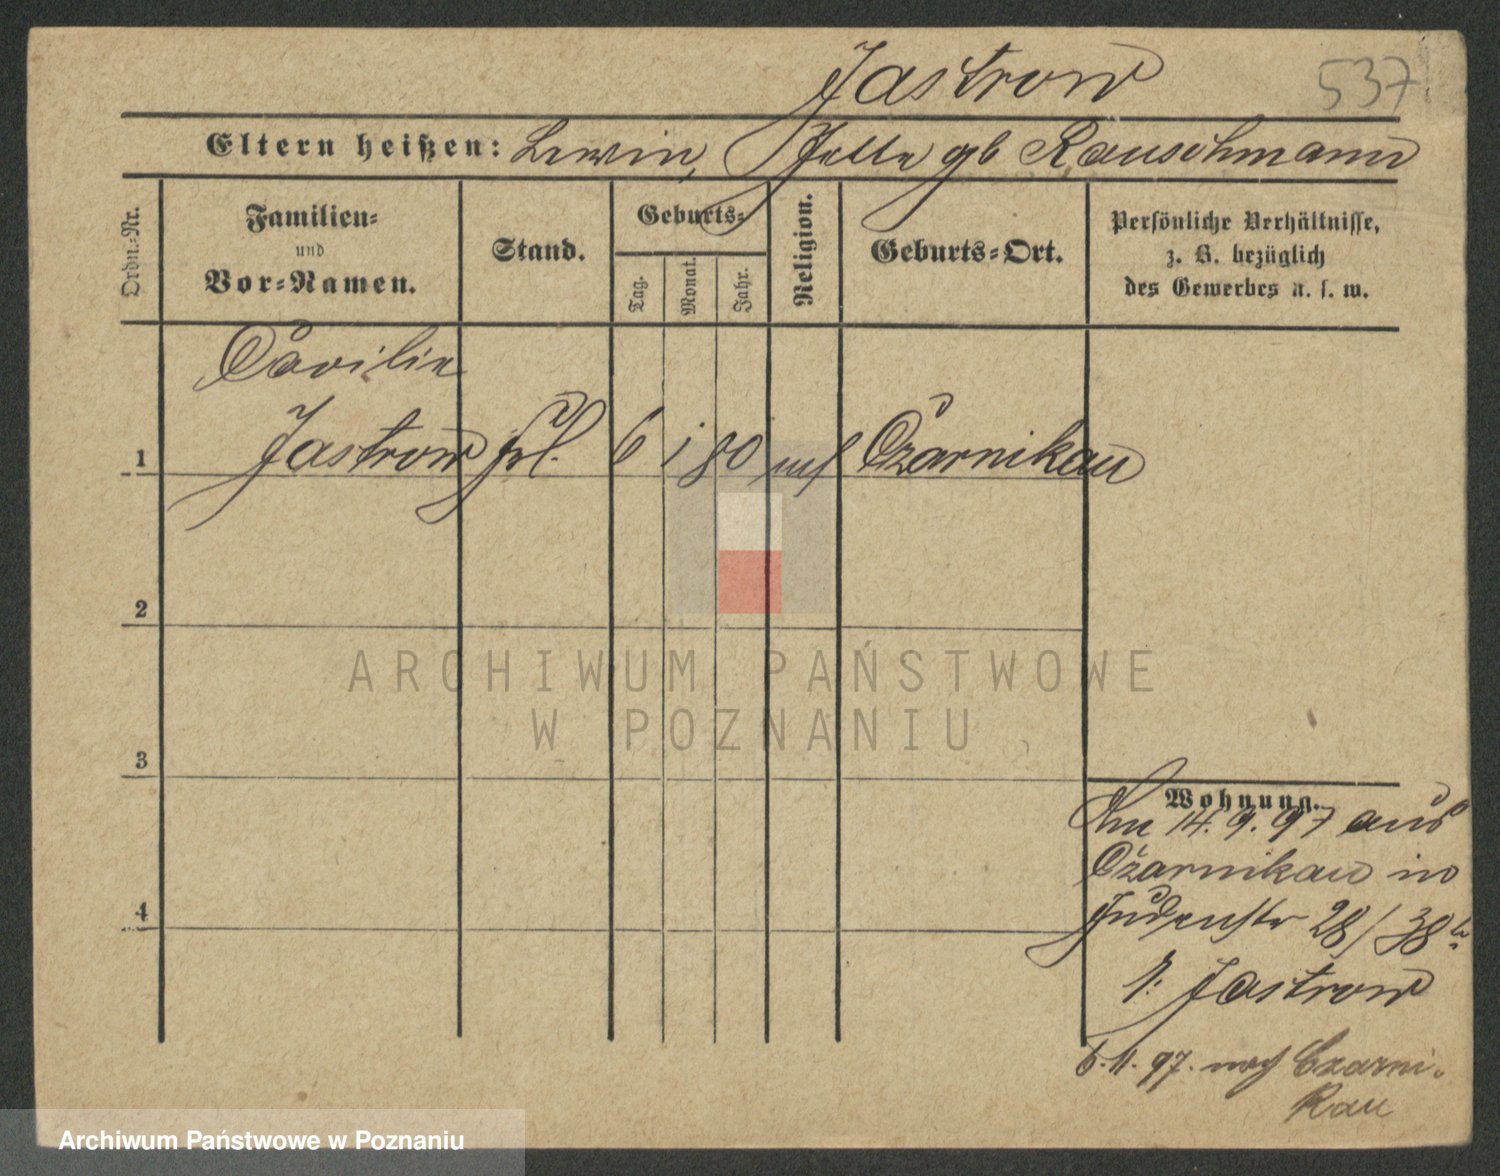 Jastrow
537
Eltern heißen: Lewin, Jette gb Rauschmann
Ordn.-Nr.
Familien-
und
Vor-Namen.
Stand.
Geburts-
Tag.
Monat.
Jahr.
Religion.
Geburts-Ort.
Persönliche Verhältnisse,
z. B. bezüglich
des Gewerbes u. s. w.
Cäcilie
1 Jastrow frl. 6 1 80 mos Czarnikau
2
ARCHIWUM PAŃSTWOWE
W POZNANIU
3
Wohnung.
Am 14.9.97 aus
Czarnikau in
Judenstr 28/38
Jastrow
6.11.97. nach Czarni-
kau
4
Archiwum Państwowe w Poznaniu